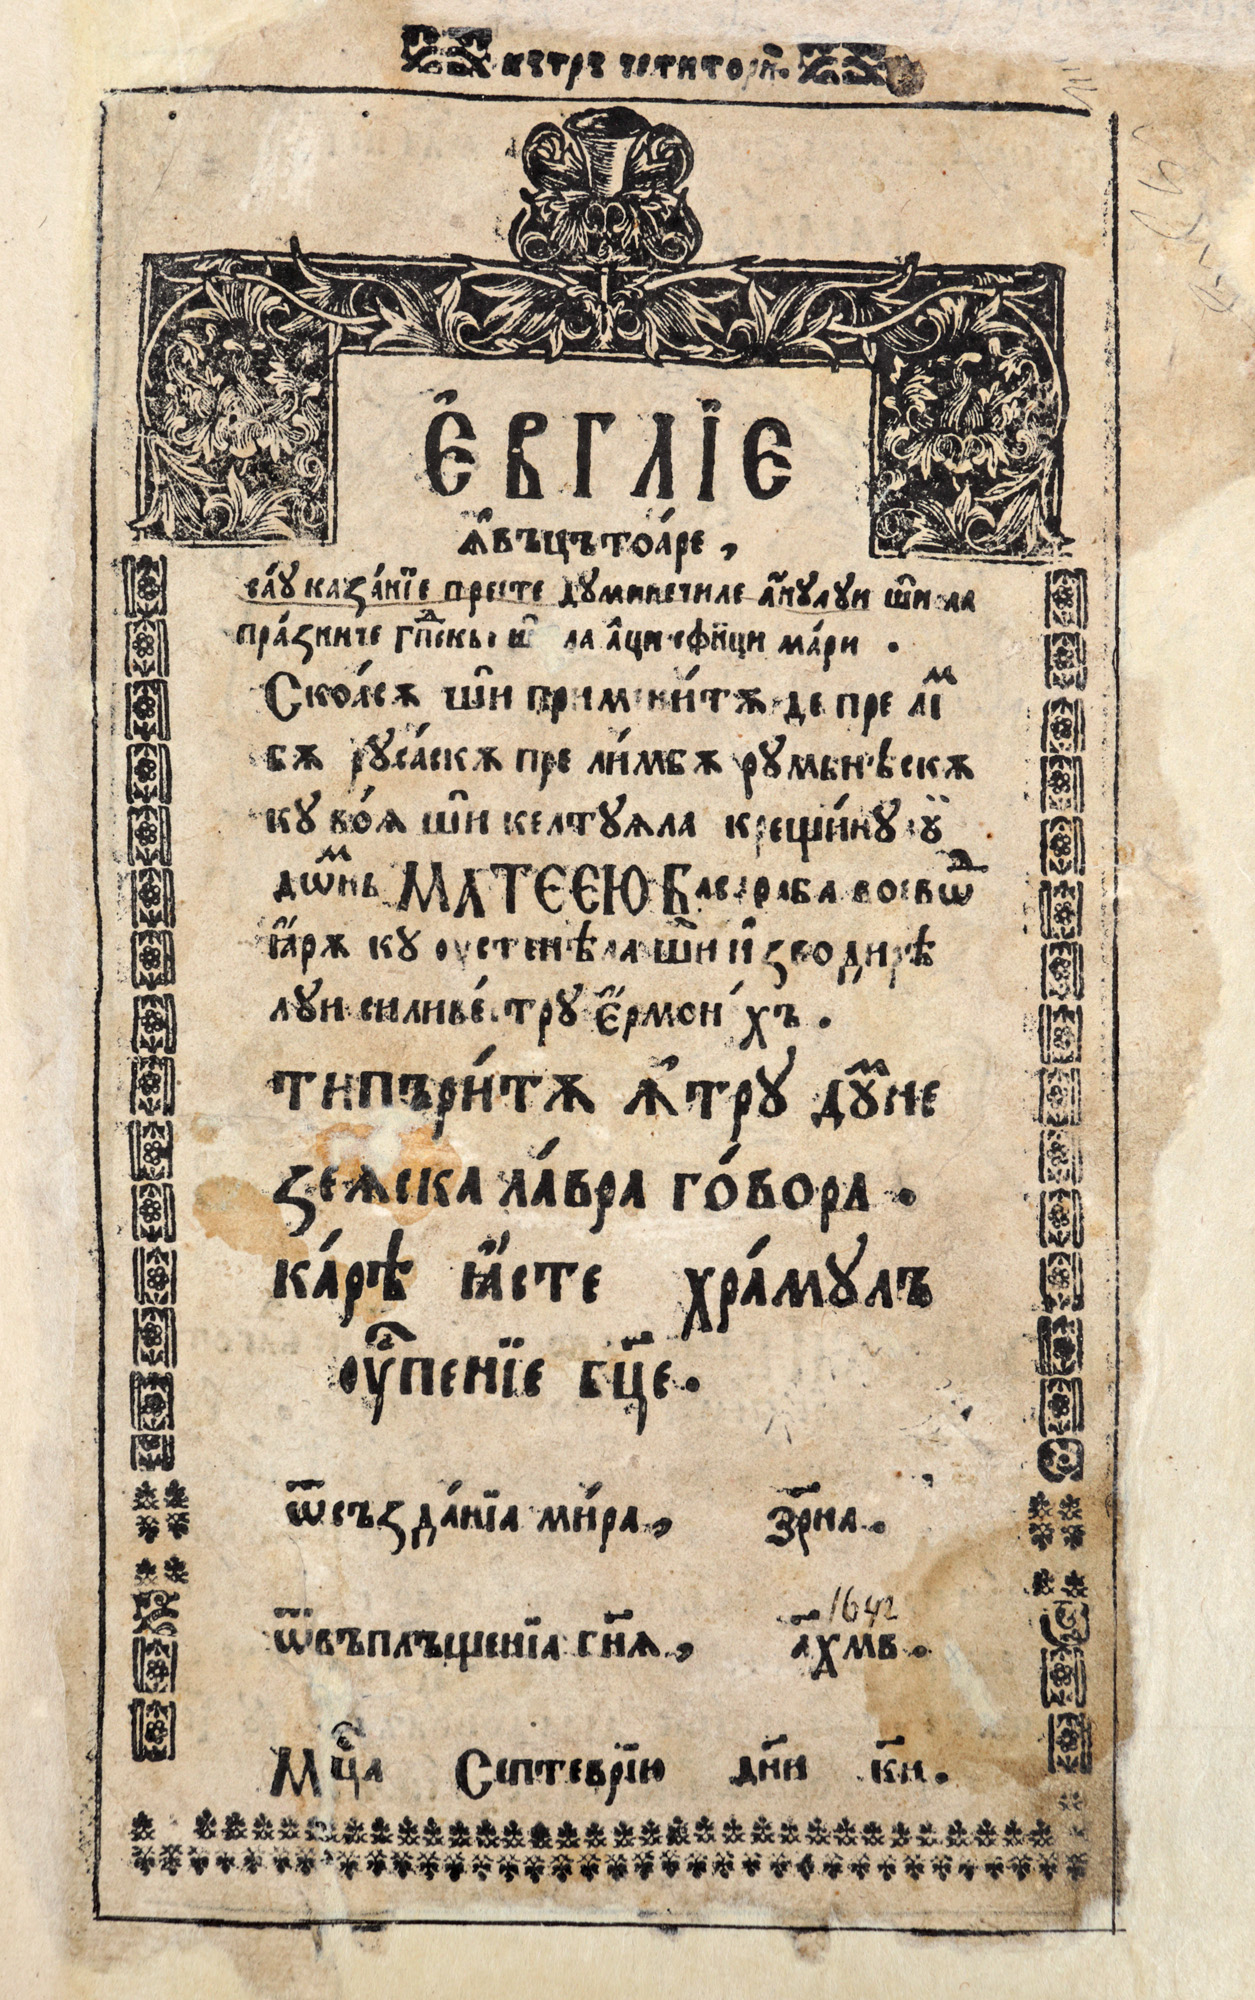 кътръ четиторй.
Є҆ѴГЛЇЄ
ꙟ҆въцътоа́ре,
са́у каза́нїе престе думинечиле а҆нулуи шѝ ла
пра́зниче гпⷭ҇дскь шѝ ла а҆ци сфн҃ци ма́ри.
Ско́асѫ шѝ приминитѫ де пре лїⷨ
бѫ руса́скѫ пре ли́мбѫ румьнѣскѫ
ку во́ѧ шѝ келтуѧла крещи́нулуй
дѡⷨнь МАТЄЄЮ Басараба воевѡⷣ
ꙗ҆рѫ ку ѹстенѣла шѝ и҆зводирѣ
луи силиве́стру є҆рмон́ хъ.
типъри́тѫ ꙟ҆тру дꙋмне
зеѧска ла́вра го́вора.
ка́рѣ ꙗ҆сте хра́мулъ
ѹⷭ҇пенїе бц҃е.
ѿ създа́нїа ми́ра, зр҃на.
ѿ въплъщенїа гн҃ѧ, а҃хмв.
1642
Мцⷭ҇а Септеврїю дн҃и к҃и.